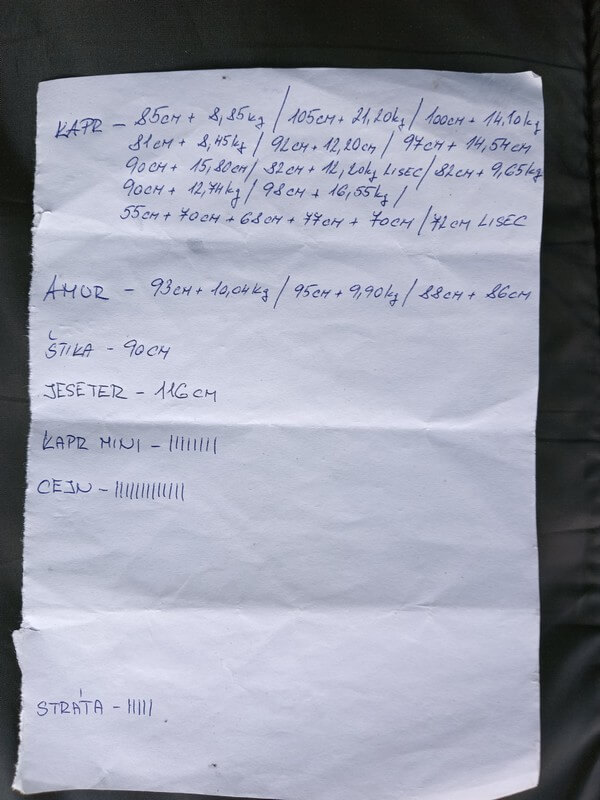 KAPR - 85cm + 8,85kg / 105cm + 21,20kg / 100cm + 14,10kg
81cm + 8,45kg / 92cm + 12,20cm / 97cm + 14,54cm
90cm + 15,80cm / 82cm + 12,20kg LISEC / 82cm + 9,65kg
90cm + 12,74kg / 98cm + 16,55kg /
55cm + 70cm + 68cm + 77cm + 70cm / 72cm LISEC
AMUR - 93cm + 10,04kg / 95cm + 9,90kg / 88cm + 86cm
ŠTIKA - 90cm
JESETER - 116cm
KAPR MINI - ||||||||
CEJN - |||||||||||||
STRÁTA - |||||